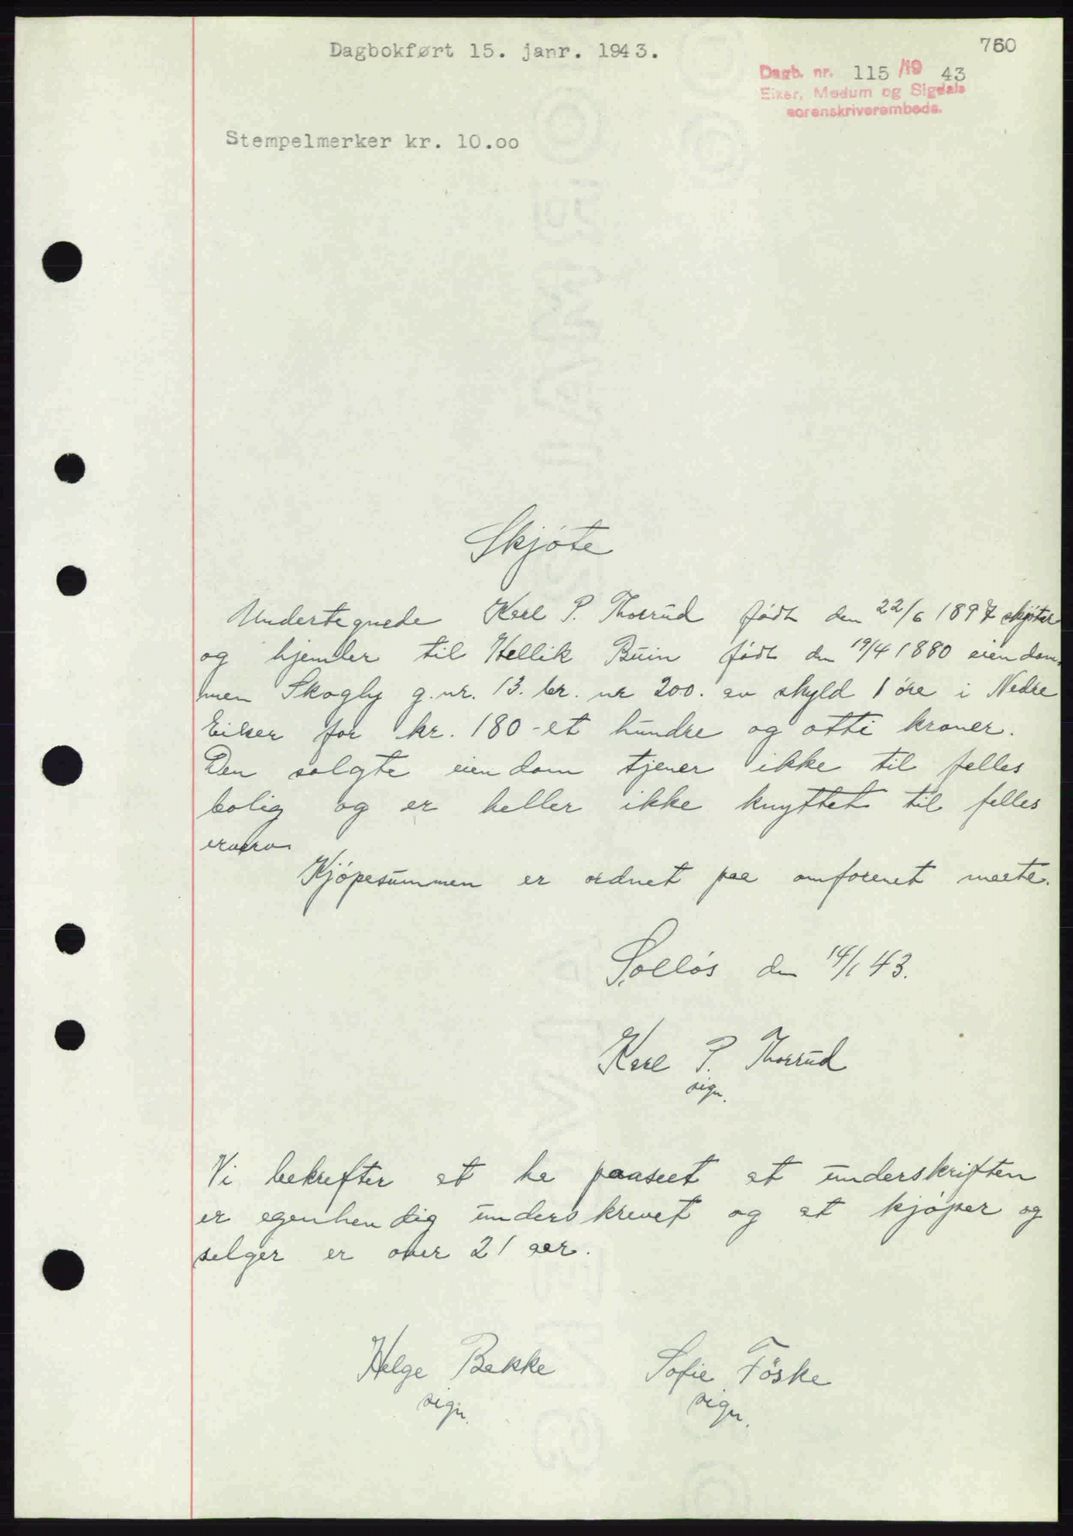 Dagbokført 15. janr. 1943.
760
Dagb. nr. 115/19 43
Eiker, Modum og Sigdals
sorenskriverembede.
Stempelmerker kr. 10.00
Skjöte
Undertegnede Karl P. Thorrud födt den 22/6 1897 skjöter
og hjemler til Hellik Buin födt den 19/4 1880 eiendom-
men Skogly g.nr. 13. br. nr 200. av skyld 1 öre i Nedre
Eiker for kr. 180 - et hundre og otti kroner.
Den solgte eiendom tjener ikke til felles
bolig og er heller ikke knyttet til felles
erverv
Kjöpesummen er ordnet paa omforenet maate.
Solløs den 14/1 43.
Karl P. Thorrud
sign.
Vi bekrefter at ha paaseet at underskriften
er egenhendig underskrevet og at kjöper og
selger er over 21 aar.
Helge Bakke Sofie Föske
sign. sign.